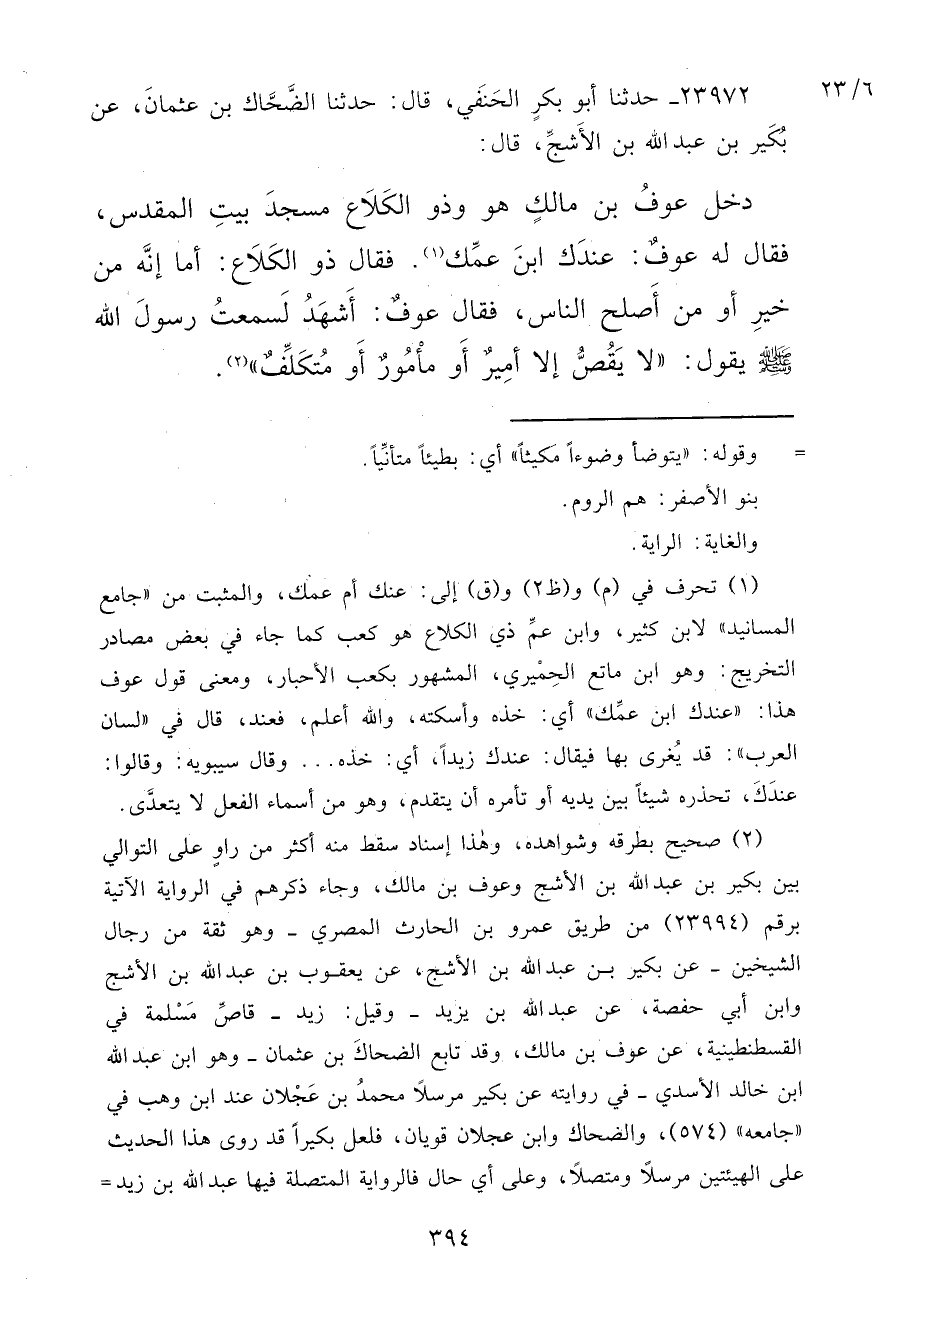 ٢٣/٦
٢٣٩٧٢ـ حدثنا أبو بكرٍ الحَنَفي، قال: حدثنا الضَّحَّاك بن عثمانَ، عن
بُكَير بن عبد الله بن الأَشجِّ، قال:
دخل عوفُ بن مالكٍ هو وذو الكَلَاع مسجدَ بيتِ المقدس،
فقال له عوفٌ: عندَك ابنَ عمِّك(١). فقال ذو الكَلَاع: أما إنَّه من
خيرِ أو من أَصلح الناس، فقال عوفٌ: أَشهَدُ لَسمعتُ رسولَ الله
ﷺ يقول: «لا يَقُصُّ إلا أَمِيرٌ أَو مأْمُورٌ أَو مُتكَلِّفٌ»(٢).
= وقوله: «يتوضأ وضوءاً مكيثاً» أي: بطيئاً متأنِّياً.
بنو الأصفر: هم الروم.
والغاية: الراية.
(١) تحرف في (م) و(ظ٢) و(ق) إلى: عنك أم عمك، والمثبت من «جامع
المسانيد» لابن كثير، وابن عمِّ ذي الكلاع هو كعب كما جاء في بعض مصادر
التخريج: وهو ابن ماتع الحِمْيري، المشهور بكعب الأحبار، ومعنى قول عوف
هذا: «عندك ابن عمِّك» أي: خذه وأسكته، والله أعلم، فعند، قال في «لسان
العرب»: قد يُغرى بها فيقال: عندك زيداً، أي: خذه... وقال سيبويه: وقالوا:
عندَكَ، تحذره شيئاً بين يديه أو تأمره أن يتقدم، وهو من أسماء الفعل لا يتعدَّى.
(٢) صحيح بطرقه وشواهده، وهٰذا إسناد سقط منه أكثر من راوٍ على التوالي
بين بكير بن عبد الله بن الأشج وعوف بن مالك، وجاء ذكرهم في الرواية الآتية
برقم (٢٣٩٩٤) من طريق عمرو بن الحارث المصري ـ وهو ثقة من رجال
الشيخين ـ عن بكير بن عبد الله بن الأشج، عن يعقوب بن عبد الله بن الأشج
وابن أبي حفصة، عن عبد الله بن يزيد ـ وقيل: زيد ـ قاصِّ مَسْلمة في
القسطنطينية، عن عوف بن مالك، وقد تابع الضحاكَ بن عثمان ـ وهو ابن عبد الله
ابن خالد الأسدي ـ في روايته عن بكير مرسلًا محمدُ بن عَجْلان عند ابن وهب في
«جامعه» (٥٧٤)، والضحاك وابن عجلان قويان، فلعل بكيراً قد روى هذا الحديث
على الهيئتين مرسلًا ومتصلًا، وعلى أي حال فالرواية المتصلة فيها عبد الله بن زيد=
٣٩٤